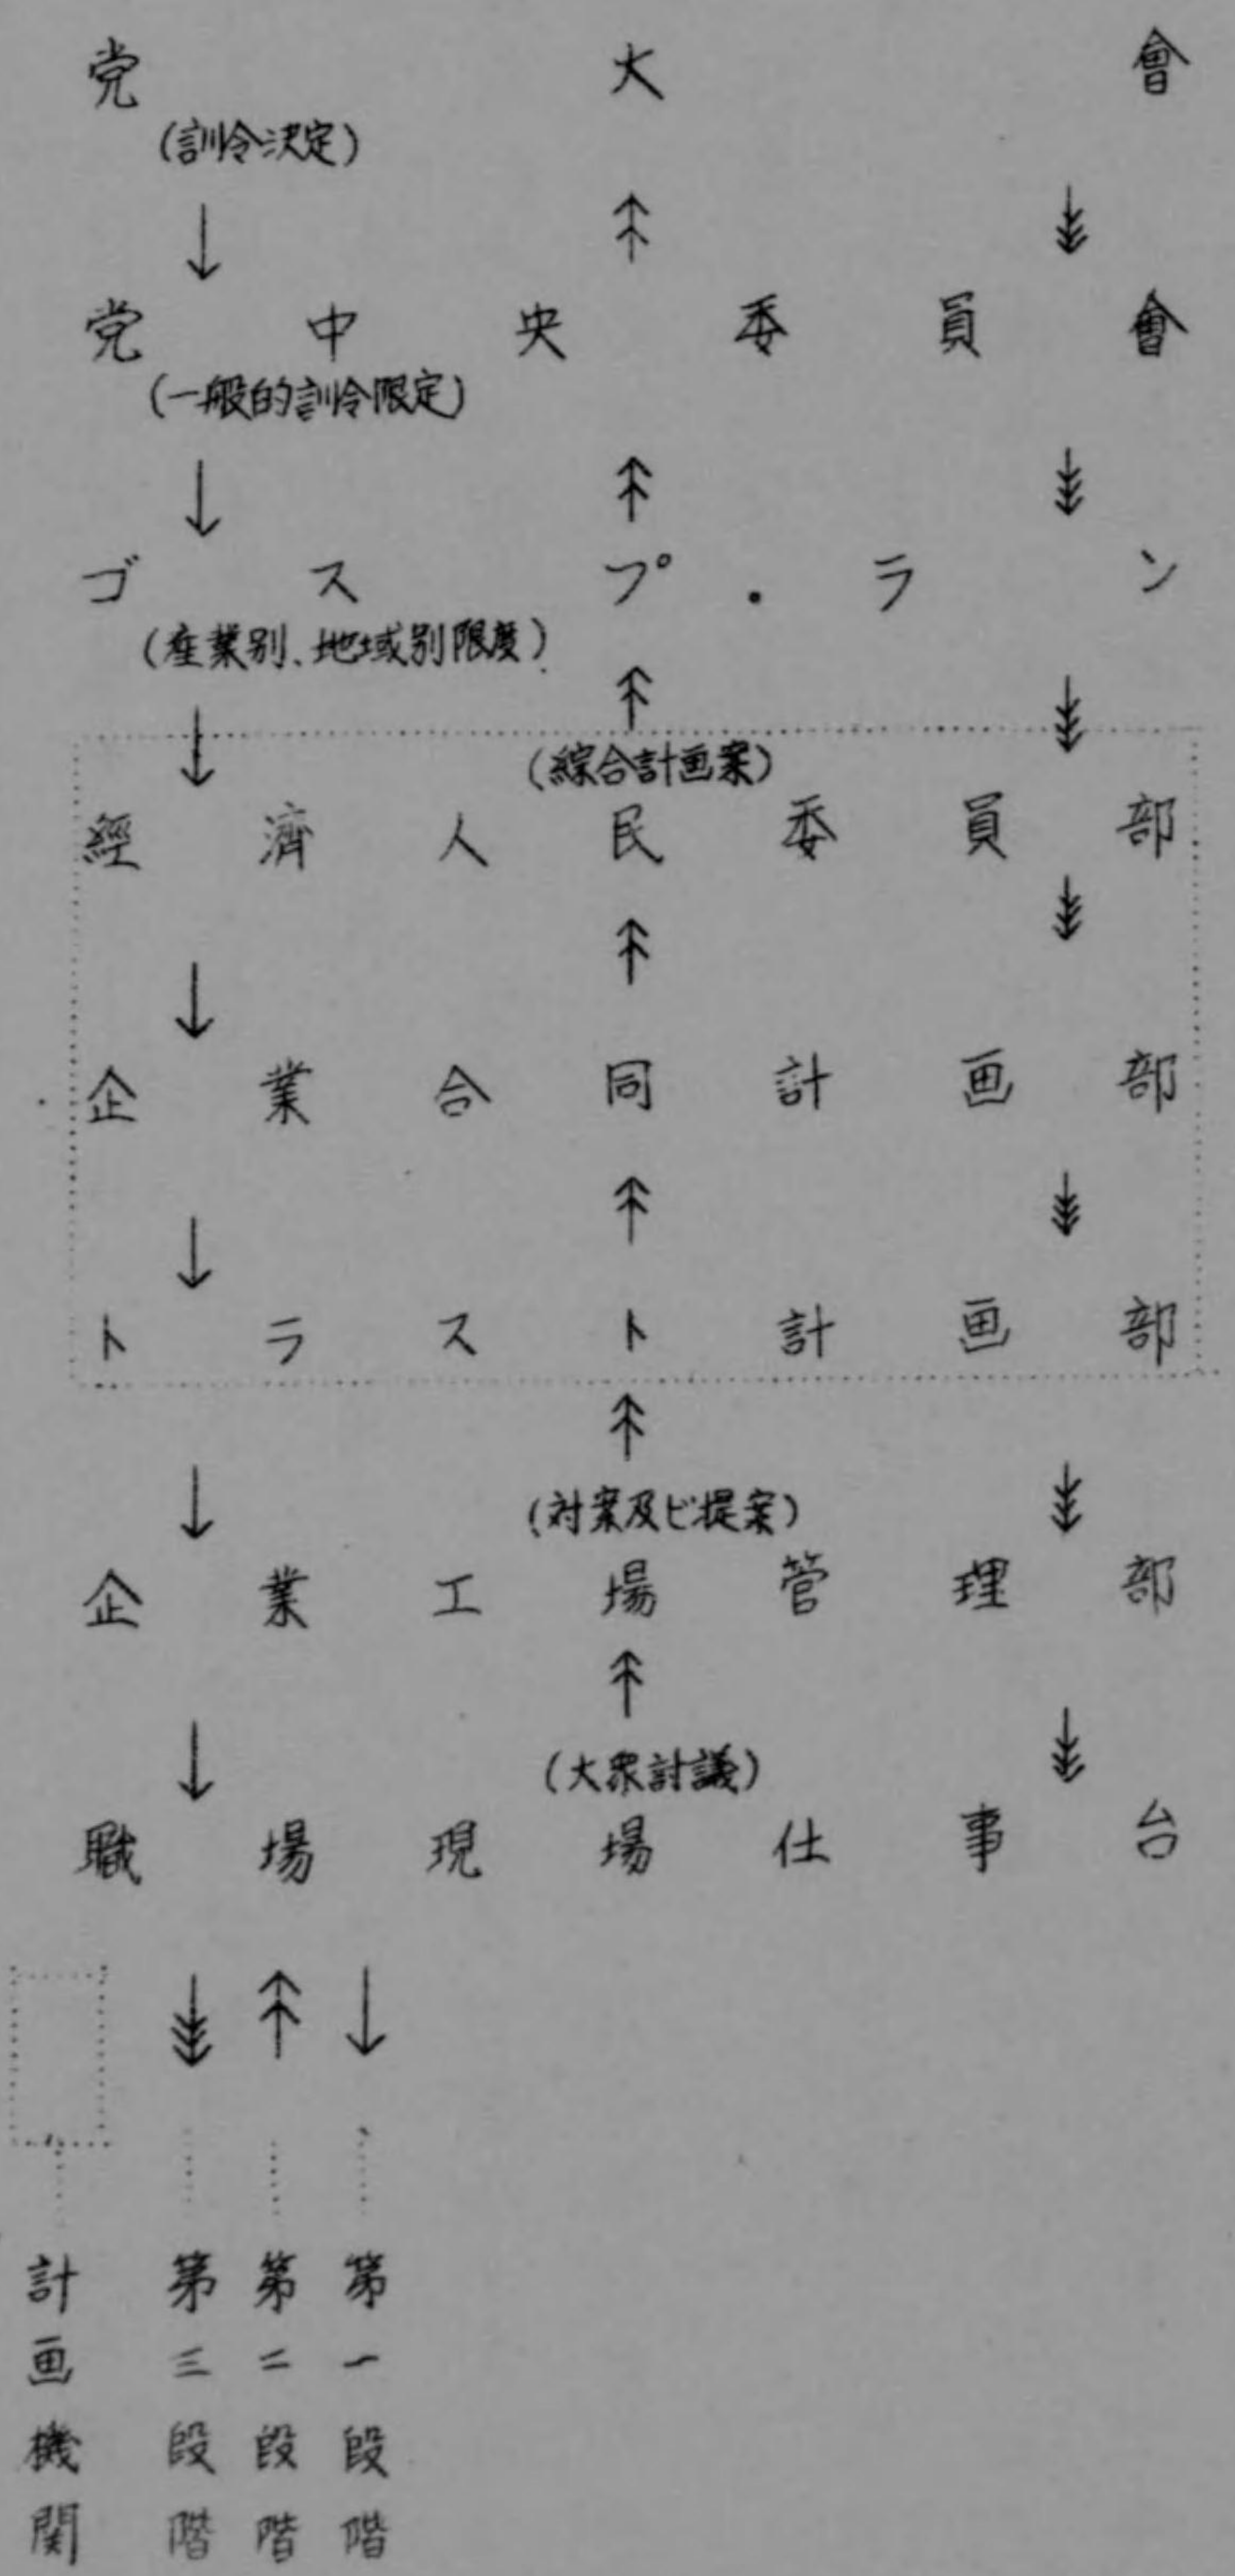 党大會
(訓令決定)
党中央委員會
(一般的訓令限定)
ゴスプ・ラン
(産業別、地域別限度)
(綜合計画案)
經濟人民委員部
企業合同計画部
トラスト計画部
(対案及ビ提案)
企業工場管理部
(大衆討議)
職場現場仕事台
第一段階
第二段階
第三段階
計画機関